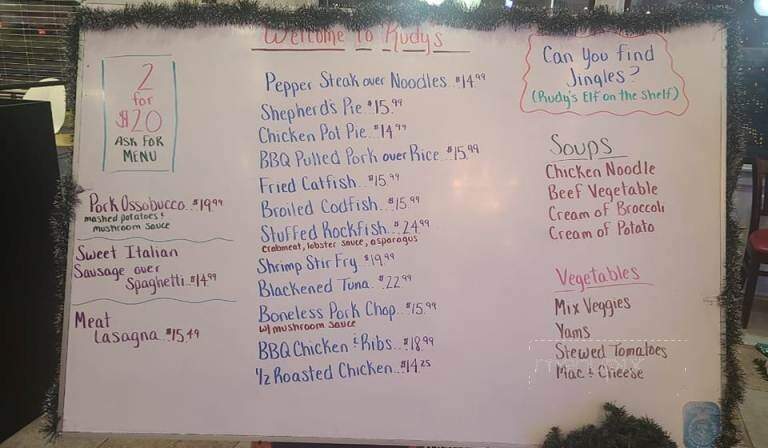 Welcome to Rudy's
2
for
$20
ASK FOR
MENU
Pork Ossobucco..$19.99
mashed potatoes &
mushroom sauce
Sweet Italian
Sausage over
Spaghetti..$14.99
Meat
Lasagna..$15.49
Pepper Steak over Noodles..$14.99
Shepherd's Pie.$15.99
Chicken Pot Pie..$14.99
BBQ Pulled Pork over Rice..$15.99
Fried Catfish..$15.99
Broiled Codfish..$15.99
Stuffed Rockfish..$24.99
crabmeat, lobster sauce, asparagus
Shrimp Stir Fry.$19.99
Blackened Tuna..$22.99
Boneless Pork Chop..$15.99
w/ mushroom sauce
BBQ Chicken & Ribs...$18.99
1/2 Roasted Chicken..$14.25
Can You find
Jingles?
(Rudy's Elf on the Shelf)
Soups
Chicken Noodle
Beef Vegetable
Cream of Broccoli
Cream of Potato
Vegetables
Mix Veggies
Yams
Stewed Tomatoes
Mac & Cheese